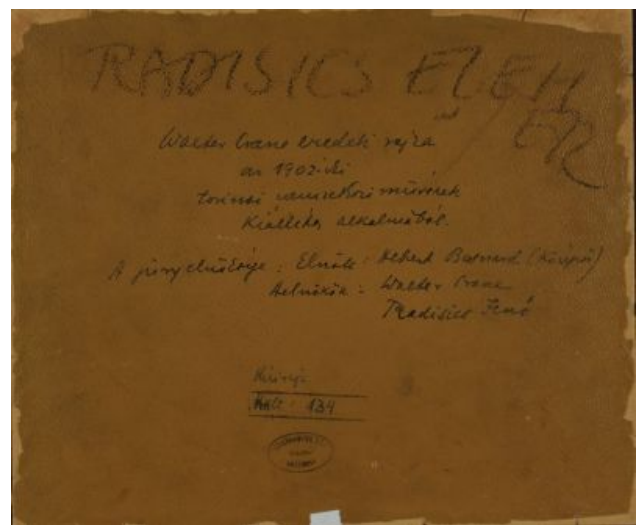 RADISICS ELEM
ÉR
Walter Crane eredeti rajza
az 1902-iki
torinói nemzetközi művészeti
kiállítás alkalmából.
A jury elnöksége : Elnök : Albert Besnard (középső)
Alelnökök : Walter Crane
Radisics Jenő
134